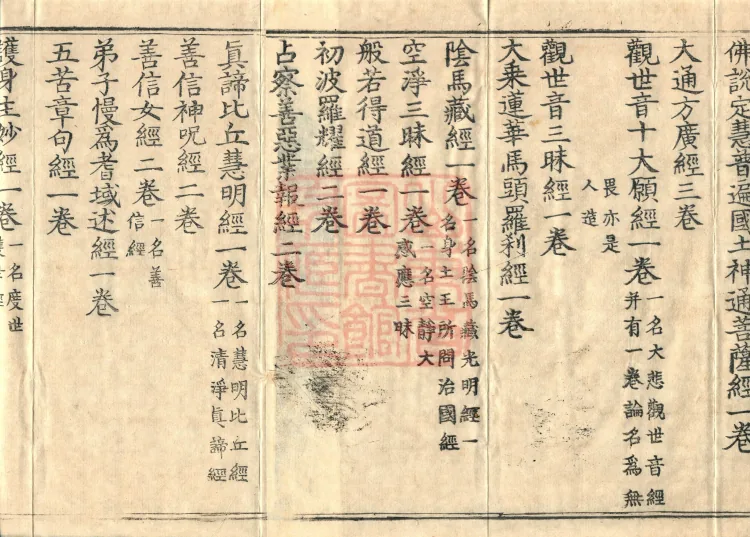 佛說定慧普遍國土神通菩薩經一卷
大通方廣經三卷
觀世音十大願經一卷一名大悲觀世音經并有一卷論名爲無畏亦是人造
觀世音三昧經一卷
大乘蓮華馬頭羅刹經一卷
陰馬藏經一卷一名陰馬藏光明經一名身土王所問治國經
空淨三昧經一卷一名空靜大感應三昧
般若得道經一卷
初波羅耀經二卷
占察善惡業報經二卷
眞諦比丘慧明經一卷一名慧明比丘經一名清淨眞諦經
善信神呪經二卷
善信女經二卷一名善信經
弟子慢爲耆域述經一卷
五苦章句經一卷
護身主妙經一卷一名度世